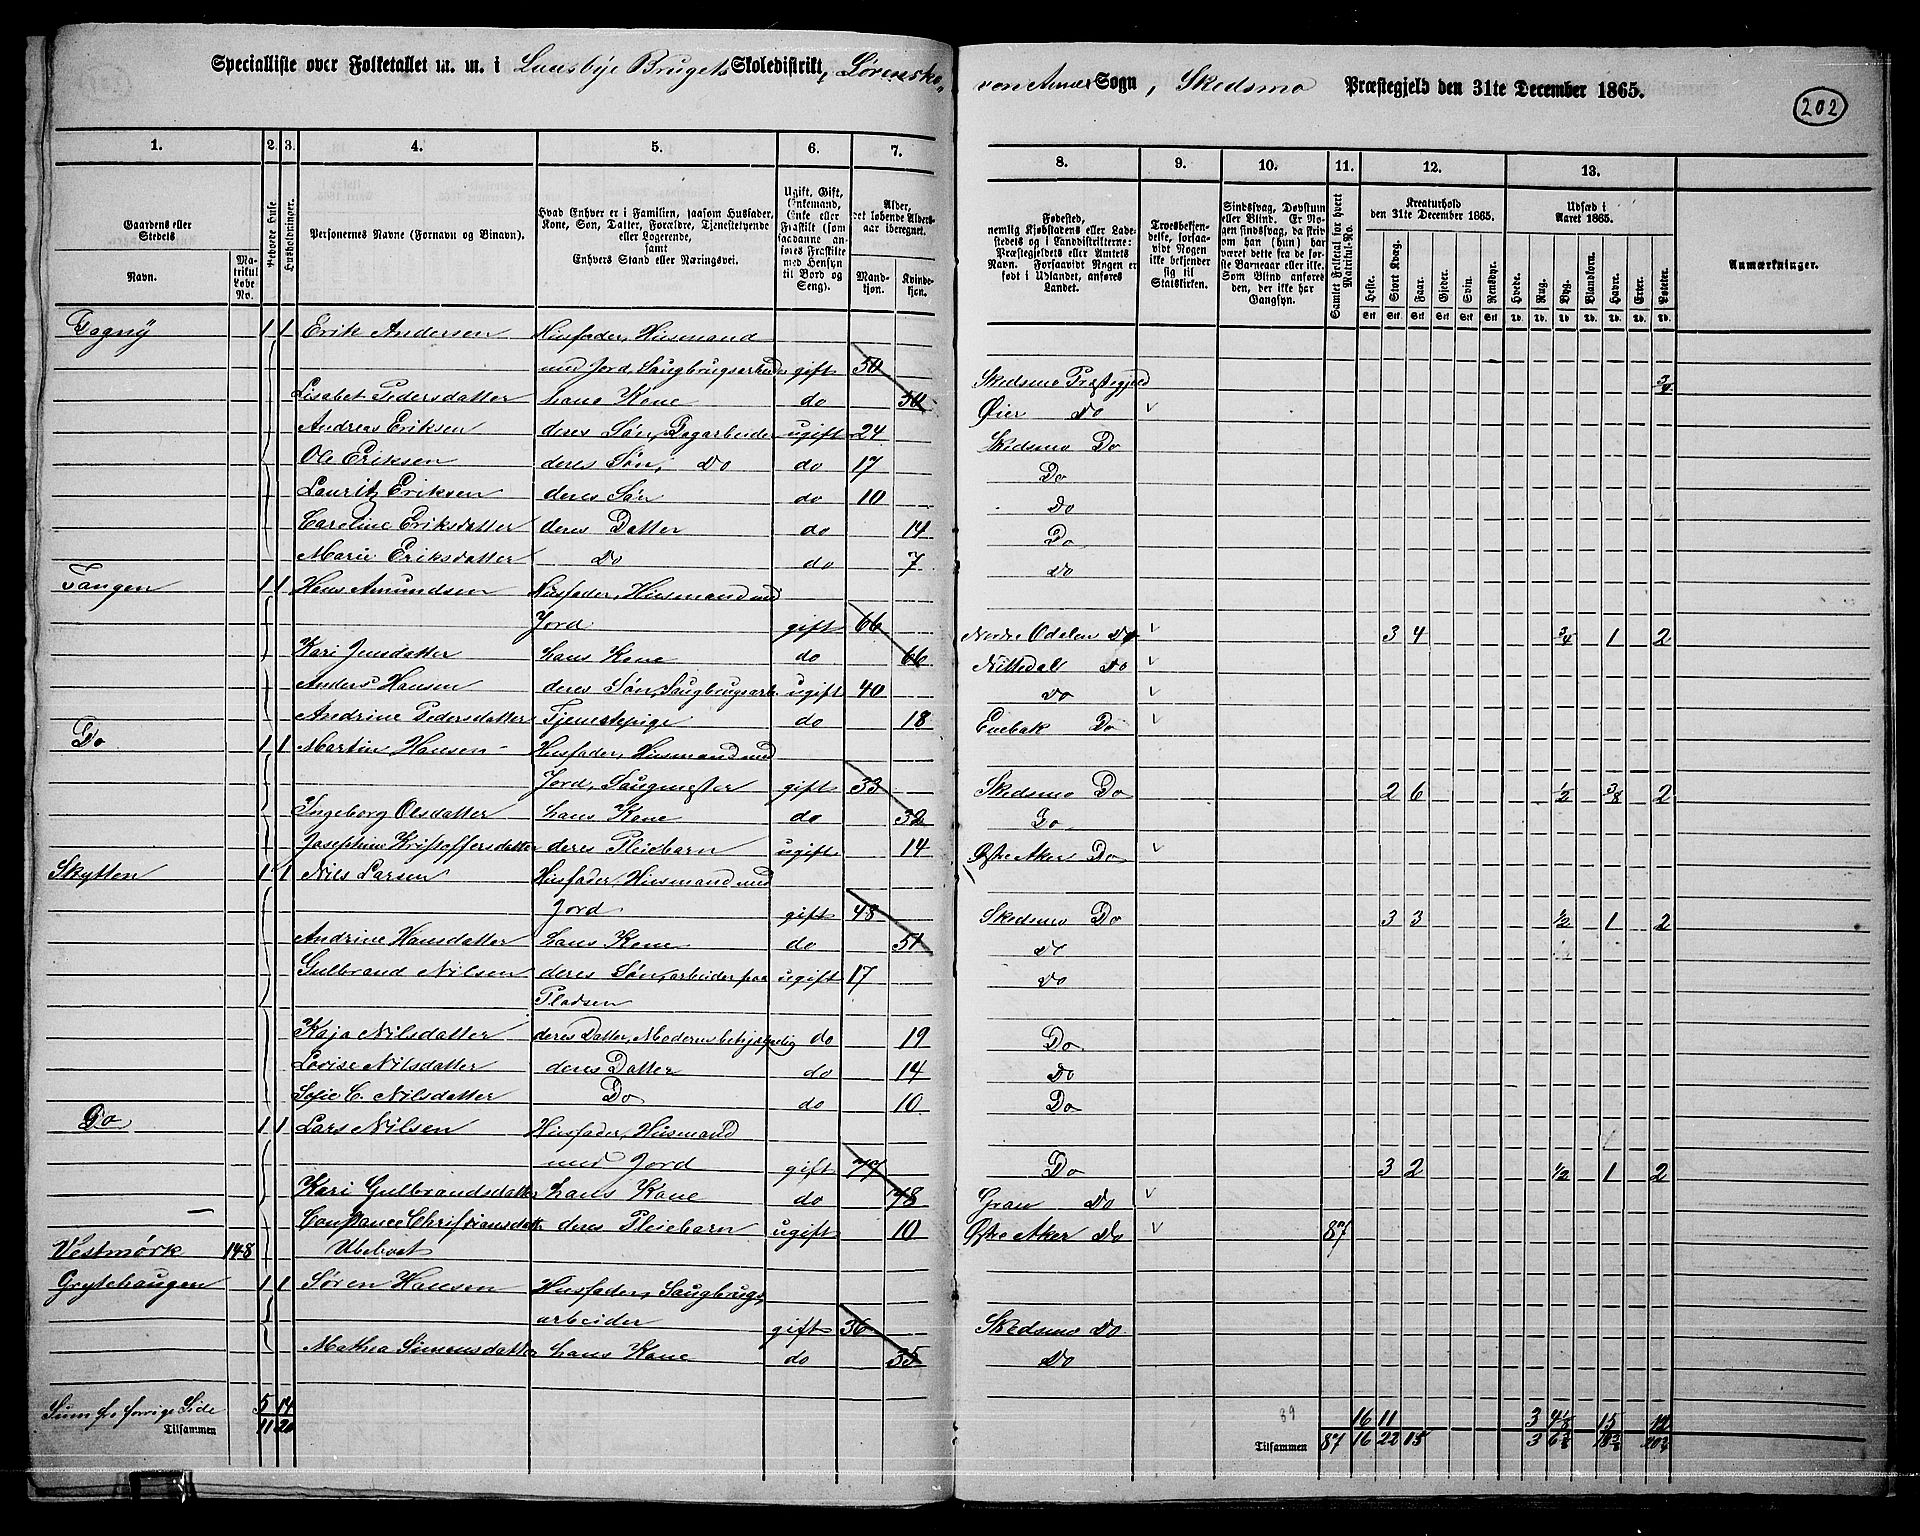 Specialliste over Folketallet m. m. i Brugets Skoledistrikt, Lørensko- Sogn, Skedsmo Præstegjeld den 31te December 1865.
202
1. 2. 3. 4. 5. 6. 7. 8. 9. 10. 11. 12. 13.
Gaardens eller Stedets Navn. Matrikul Løbe No. Beboede Huse. Husholdninger. Personernes Navne (Fornavn og Binavn). Hvad Enhver er i Familien, saasom Husfader, Kone, Søn, Datter, Forældre, Tjenestetyende eller Logerende, samt Enhvers Stand eller Næringsvei. Ugift, Gift, Enkemand, Enke eller Fraskilt (som saadanne anføres Fraskilte med Hensyn til Bord og Seng). Alder, det løbende Aldersaar iberegnet. Mandkjøn. Kvindekjøn.
Fødested, nemlig Kjøbstadens eller Ladestedets og i Landdistrikterne: Præstegjeldets eller Amtets Navn. Forsaavidt Nogen er født i Udlandet, anføres Landet. Troesbekjendelse, forsaavidt Nogen ikke bekjender sig til Statskirken. Sindssvag, Døvstum eller Blind. Er Nogen sindssvag, da skrives om han (hun) har været dette fra de første Barneaar eller ikke. Som Blind anføres den, der ikke har Gangsyn. Samlet Folketal for hvert Matrikul-No. Kreaturhold den 31te December 1865. Heste. Stort Kvæg. Faar. Gjeder. Svin. Rensdyr. Udsæd i Aaret 1865. Hvede. Rug. Byg. Blandkorn. Havre. Erter. Poteter. Anmærkninger.
1 1 Erik Andersen Husfader, Husmand
med Jord, Saugbrugsarbeider gift 50 Skedsmo Præstegjeld 3/4
Lisabet Pedersdatter hans Kone do 50 Øier Do
Andreas Eriksen deres Søn, Dagarbeider ugift 24 Skedsmo Do
Ole Eriksen deres Søn, Do do 17 Do
Lauritz Eriksen deres Søn do 10 Do
Caroline Eriksdatter deres Datter do 14 Do
Marie Eriksdatter Do do 7 Do
Tangen 1 1 Hans Amundsen Husfader, Husmand med
Jord gift 66 Nordre Odalen Do 3 4 3/4 1 2
Kari Jensdatter hans Kone do 66 Nittedal Do
Anders Hansen deres Søn, Saugbrugsarb. ugift 40 Do
Andrine Pedersdatter Tjenestepige do 18 Enebak Do
Do 1 1 Martin Hansen Husfader, Husmand med
Jord, Saugmester gift 33 Skedsmo Do 2 6 1/2 3/8 2
Ingeborg Olsdatter hans Kone do 32 Do
Josephine Kristoffersdatter deres Pleiebarn ugift 14 Østre Aker Do
Skytten 1 1 Nils Larsen Husfader, Husmand med
Jord gift 48 Skedsmo Do 3 3 1/2 1 2
Andrine Hansdatter hans Kone do 51 Do
Gulbrand Nilsen deres Søn, arbeider paa ugift 17 Do
Pladsen
Kaja Nilsdatter deres Datter, Moderen behjælpelig do 19 Do
Lovise Nilsdatter deres Datter do 14 Do
Sofie C. Nilsdatter Do do 10 Do
Do 1 1 Lars Nilsen Husfader, Husmand
med Jord gift 77 Do 3 2 1/2 1 2
Kari Gulbrandsdatter hans Kone do 78 Gran Do
Constance Christiansdatt. deres Pleiebarn ugift 10 Østre Aker Do 87
Vestmørk 148 Ubeboet
Grytehaugen 1 1 Søren Hansen Husfader, Saugbrugs-
arbeider gift 36 Skedsmo Do
Mathea Simensdatter hans Kone do 35 Do
Sum fr forrige Side 5 14 89 16 11 3 15 12
Tilsammen 11 20 Tilsammen 87 16 22 15 3